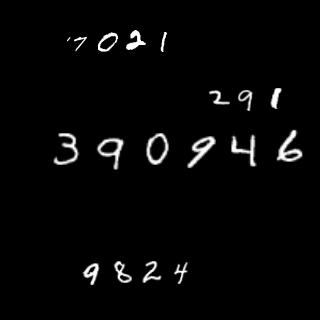 7021
291
390946
9824